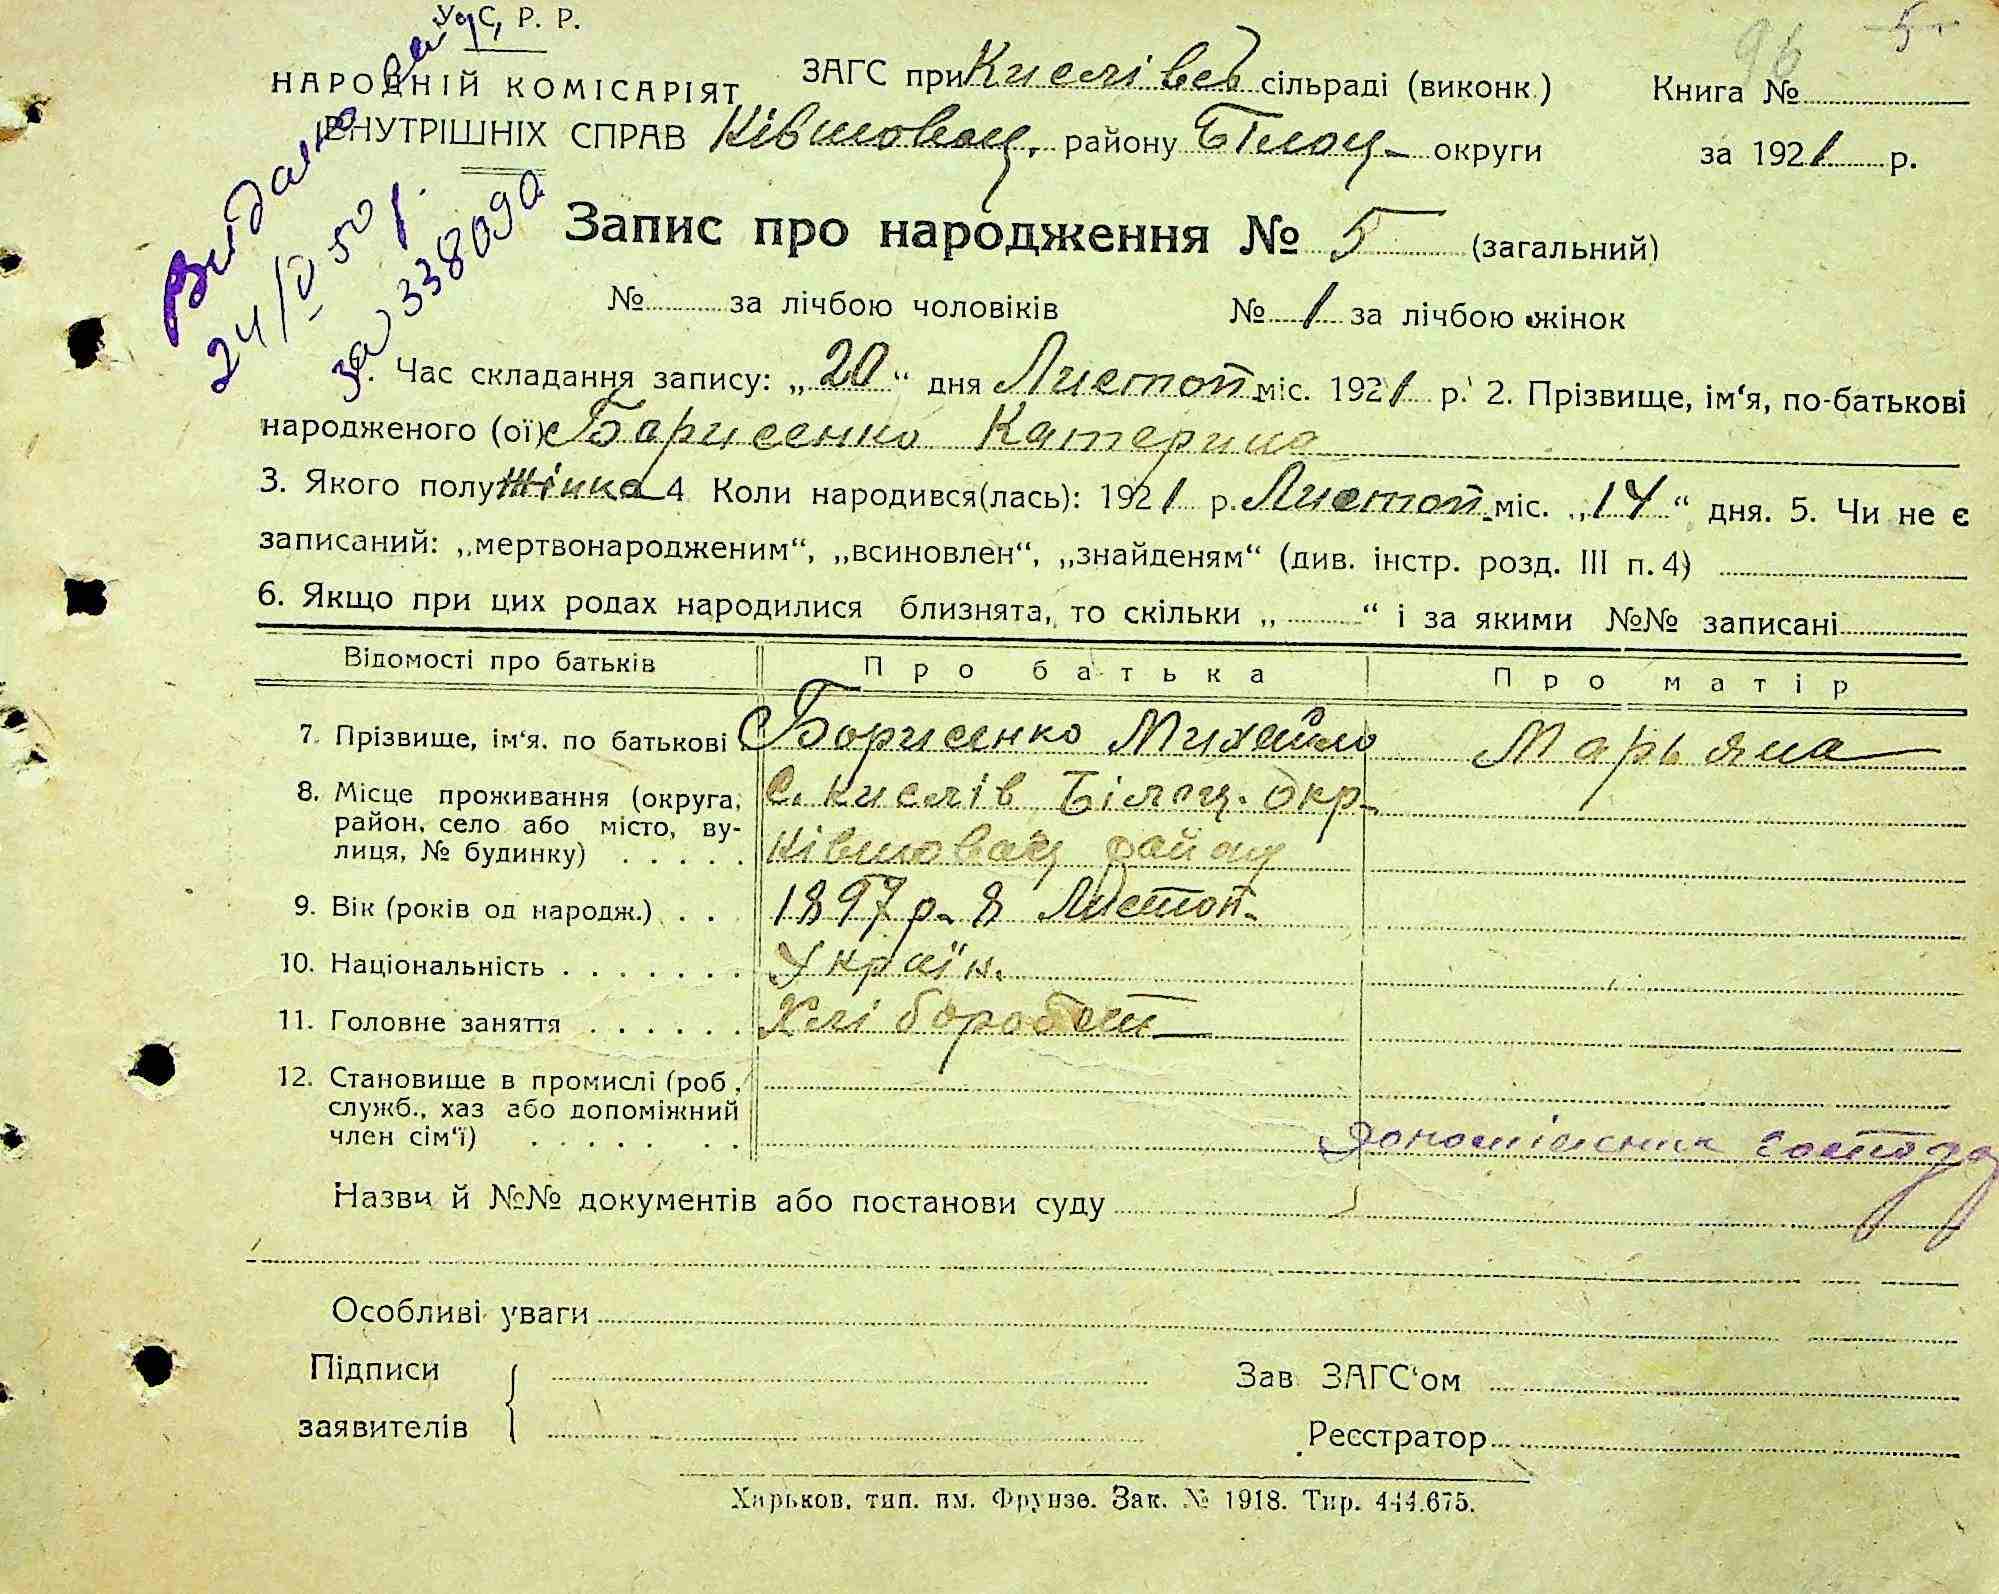 У. С. Р. Р.
НАРОДНІЙ КОМІСАРІЯТ
ВНУТРІШНІХ СПРАВ
ЗАГС при Кислівсь сільраді (виконк.)
Ківшовац. району Білоц- округи
96 5
Книга №
за 1921 р.
Видано
24/V 50 р.
за 338090
Запис про народження № 5 (загальний)
№ за лічбою чоловіків № 1 за лічбою жінок
1. Час складання запису: „20“ дня Листоп. міс. 1921 р. 2. Прізвище, ім‘я, по-батькові
народженого (ої) Борисенко Катерина
3. Якого полу Жінка 4 Коли народився(лась): 1921 р. Листоп. міс. „14“ дня. 5. Чи не є
записаний: „мертвонародженим“, „всиновлен“, „знайденям“ (див. інстр. розд. III п. 4)
6. Якщо при цих родах народилися близнята, то скільки „ “ і за якими №№ записані
Відомості про батьків Про батька Про матір
7. Прізвище, ім‘я, по батькові Борисенко Михайло Марьяна
8. Місце проживання (округа, с. Кислів Білоц. Окр-
район, село або місто, ву-
лиця, № будинку) Ківшовац району
9. Вік (років од народж.) 1897 р. 8 Листоп.
10. Національність Україн.
11. Головне заняття Хлібороб
12. Становище в промислі (роб.,
служб., хаз або допоміжний
член сім‘ї)
Назви й №№ документів або постанови суду
Особливі уваги
Підписи
заявителів
Зав ЗАГС‘ом
Реєстратор
Харьков, тип. им. Фрунзе. Зак. № 1918. Тир. 444.675.